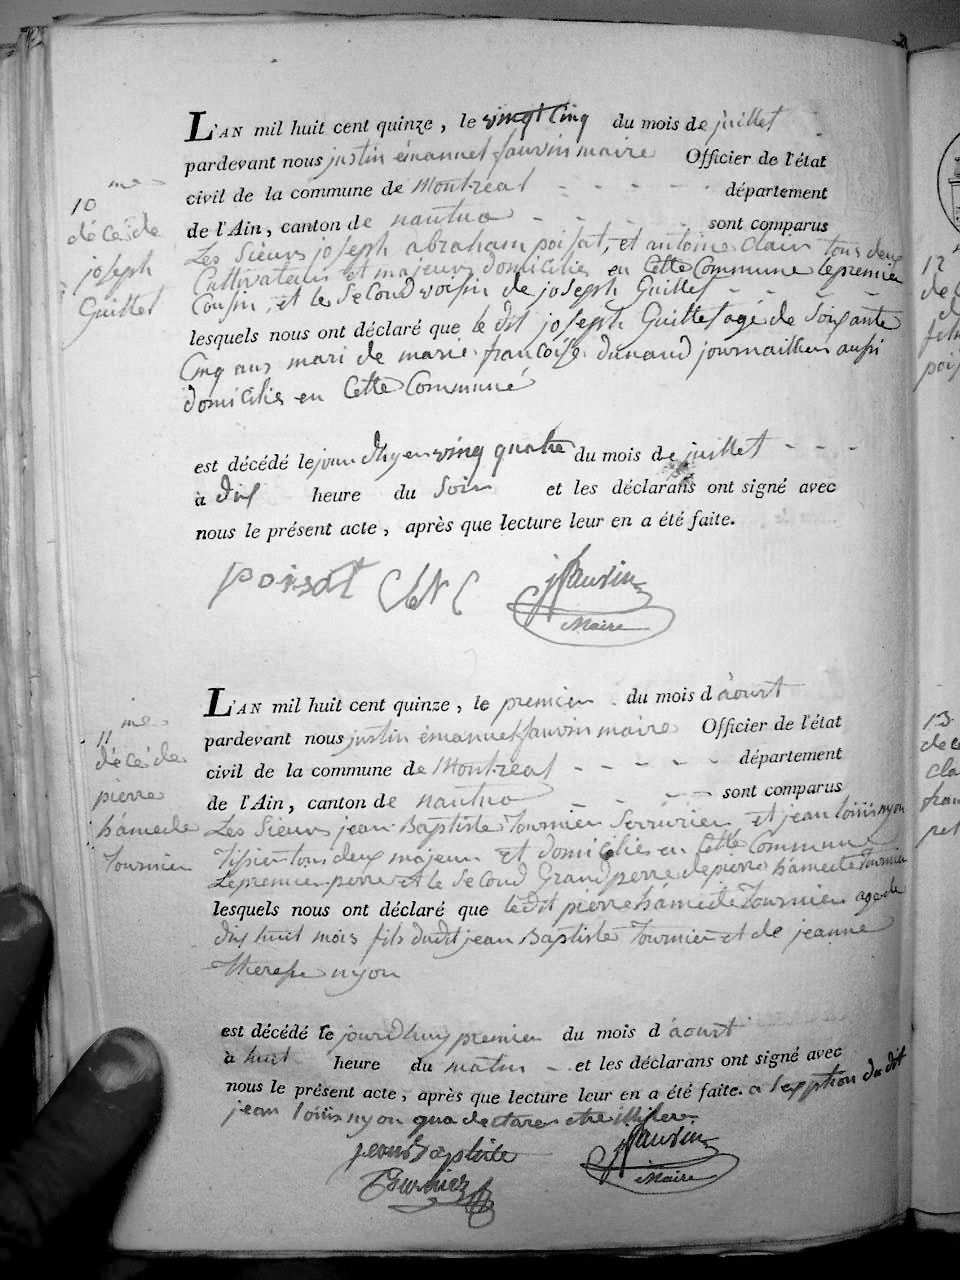 L'AN mil huit cent quinze, le vingt cinq du mois de juillet
pardevant nous justin émanuel fauvin maire Officier de l'état
10 me
civil de la commune de Montreal département
de l'Ain, canton de nantua sont comparus
décé de
joseph
Guillet
Les Sieurs joseph abraham poisat, et antoine clair tous deux
Cultivateurs et majeurs domicilies en Cette Commune le premier
Cousin, et le Second voisin de joseph Guillet
lesquels nous ont déclaré que le dit joseph Guillet agé de Soixante
Cinq ans mari de marie françoise dunand journaillier aussi
domicilies en Cette Commune
est décédé le jour dhyer vingt quatre du mois de juillet
à dix heure du Soir et les déclarans ont signé avec
nous le présent acte, après que lecture leur en a été faite.
poisat jfauvin
Maire
L'AN mil huit cent quinze, le premier du mois d'aoust
pardevant nous justin émanuel fauvin maire Officier de l'état
11 me
civil de la commune de Montreal département
de l'Ain, canton de nantua sont comparus
décé de
pierre
hâmede
tournier
Les Sieurs jean Baptiste tournier Serrurier, et jean loüis nyon
Tissier tous deux majeur et domicilies en Cette Commune
Le premier perre et le Second Grand perre de pierre hâmede tournier
lesquels nous ont déclaré que le dit pierre hâmede tournier age de
dix huit mois fils du dit jean Baptiste tournier et de jeanne
therese nyon
est décédé le jourdhuy premier du mois d'aoust
à huit heure du matin et les déclarans ont signé avec
nous le présent acte, après que lecture leur en a été faite. a lexption du dit
jean loüis nyon qua declare etre illitere
jean baptiste
tournier
jfauvin
Maire
12
13